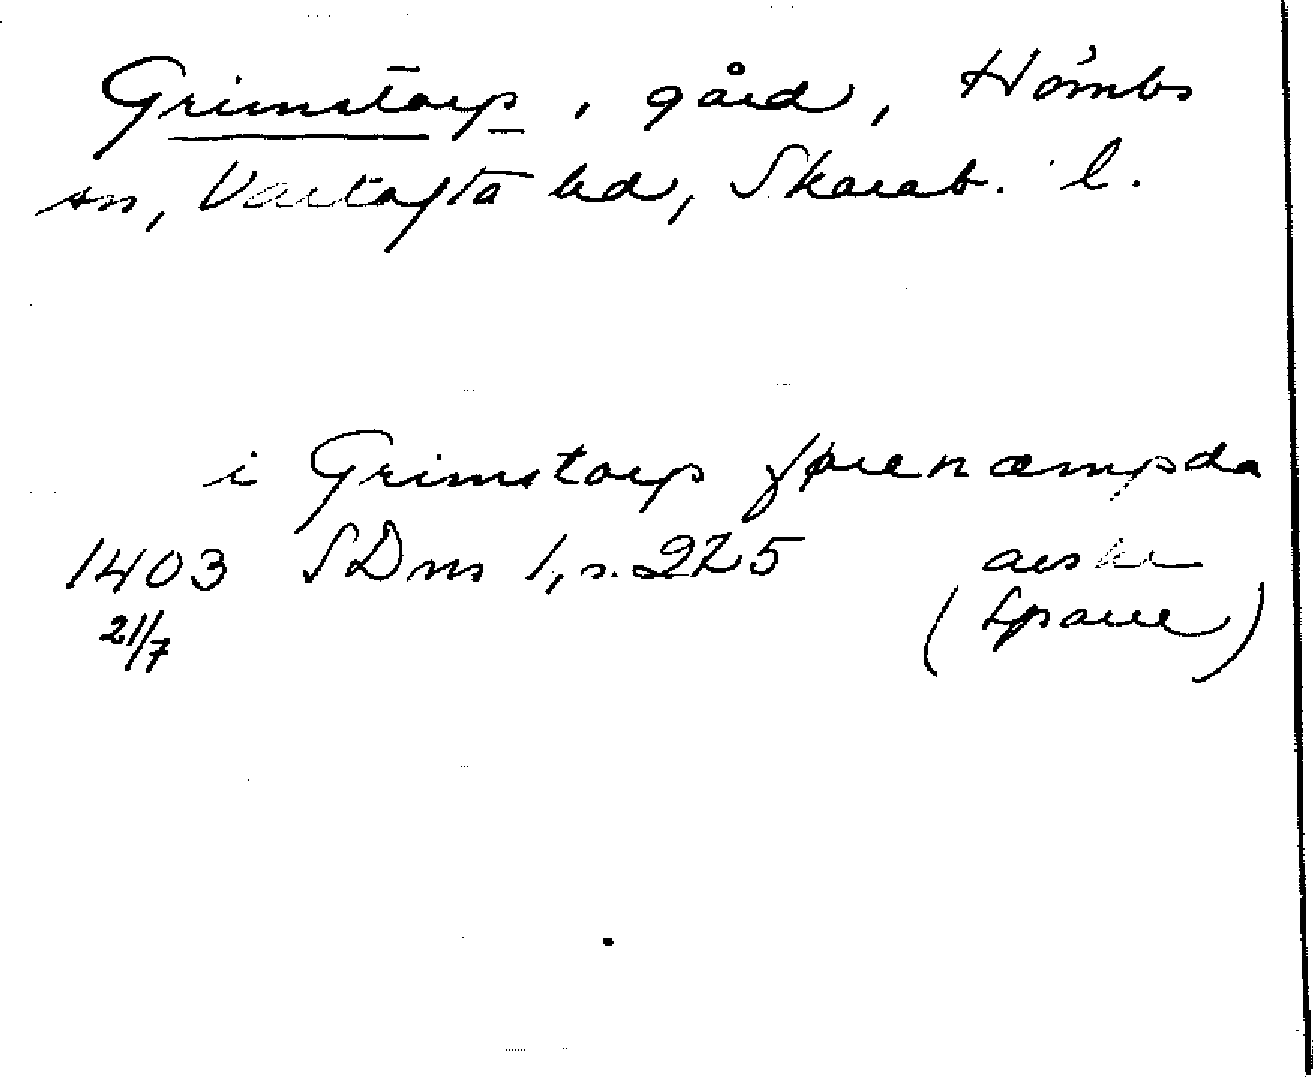 Grimstorp, gård, Hömbs
sn, Vartofta hd, Skarab. l.
i Grimstorp førenæmpda
1403 SDns 1, s. 225
21/7 (Sparre)